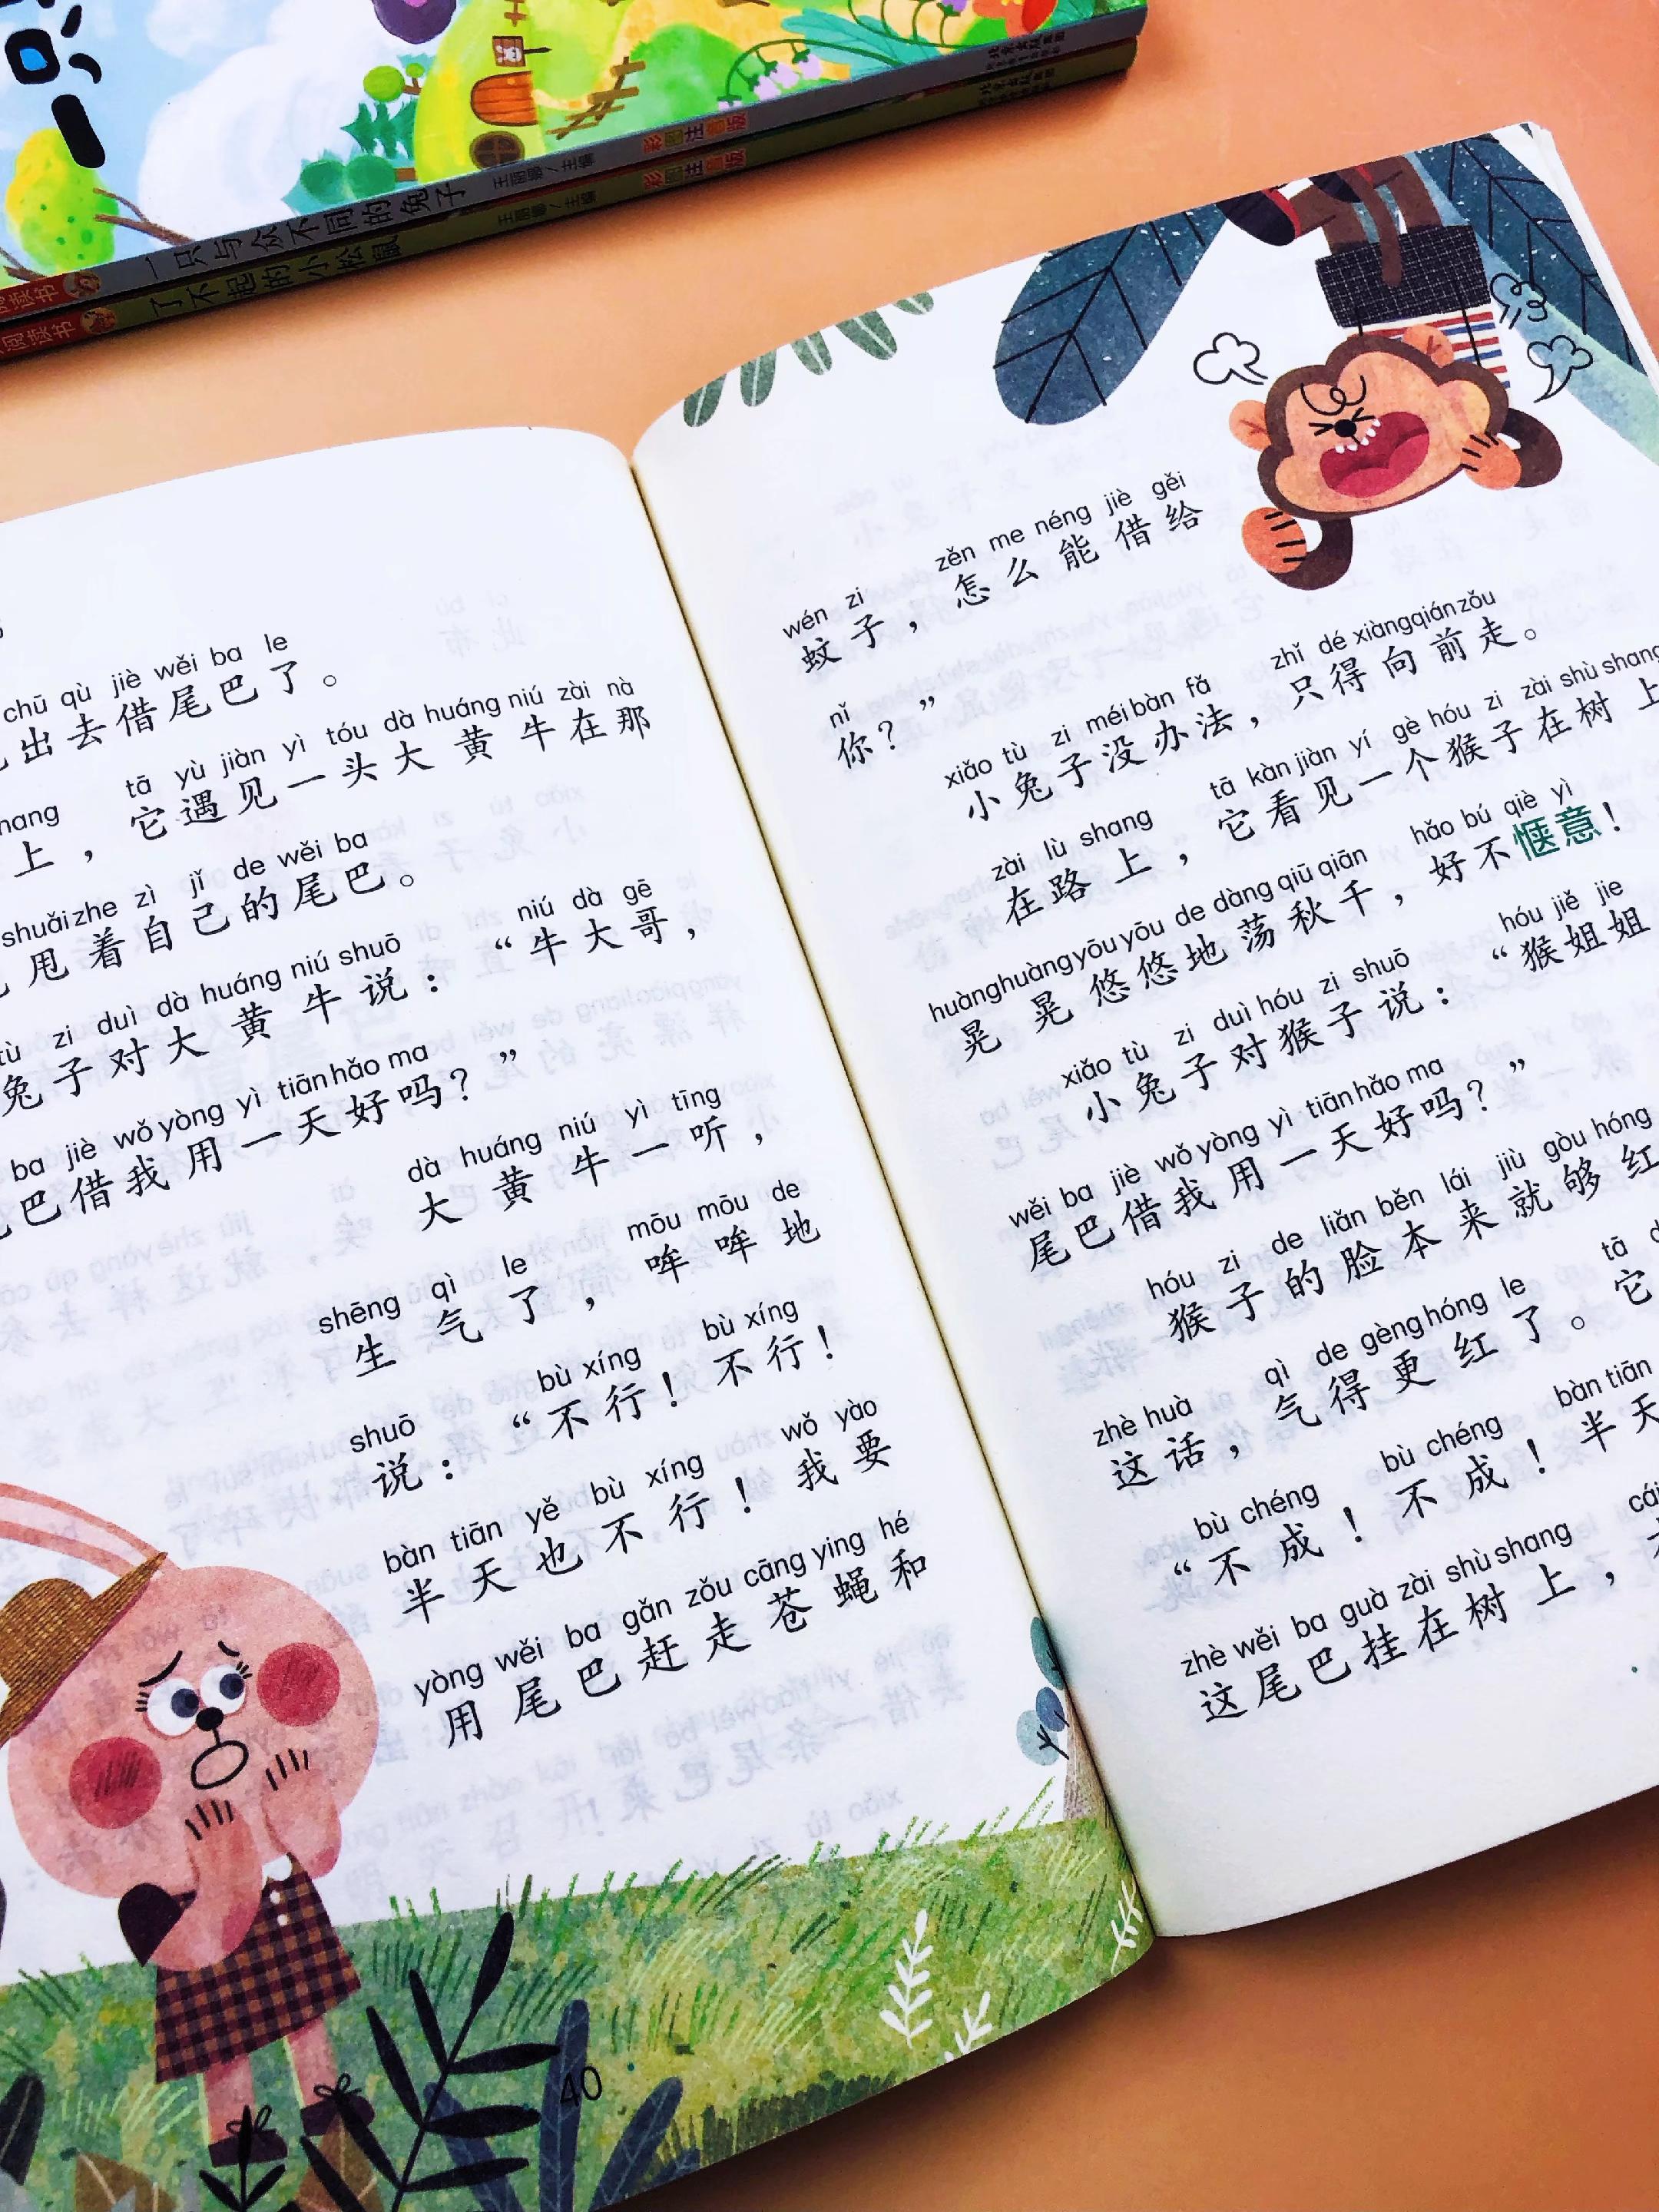 一只与众不同的兔子 王丽娜/主编 彩图注音版
了不起的小松鼠 王丽娜/主编 彩图注音版
阅读书
阅读书
chū qù jiè wěi ba le
出去借尾巴了。
tā yù jiàn yì tóu dà huáng niú zài nà
上，它遇见一头大黄牛在那
shuǎi zhe zì jǐ de wěi ba
甩着自己的尾巴。
tù zi duì dà huáng niú shuō niú dà gē
兔子对大黄牛说：“牛大哥，
ba jiè wǒ yòng yì tiān hǎo ma
巴借我用一天好吗？”
dà huáng niú yì tīng
大黄牛一听，
shēng qì le mōu mōu de
生气了，哞哞地
shuō bù xíng bù xíng
说：“不行！不行！
bàn tiān yě bù xíng wǒ yào
半天也不行！我要
yòng wěi ba gǎn zǒu cāng ying hé
用尾巴赶走苍蝇和
40
wén zi zěn me néng jiè gěi
蚊子，怎么能借给
nǐ
你？”
xiǎo tù zi méi bàn fǎ zhǐ dé xiàng qián zǒu
小兔子没办法，只得向前走。
zài lù shang tā kàn jiàn yí gè hóu zi zài shù shang
在路上，它看见一个猴子在树上
huàng huàng yōu yōu de dàng qiū qiān hǎo bú qiè yì
晃晃悠悠地荡秋千，好不惬意！
xiǎo tù zi duì hóu zi shuō hóu jiě jie
小兔子对猴子说：“猴姐姐
wěi ba jiè wǒ yòng yì tiān hǎo ma
尾巴借我用一天好吗？”
hóu zi de liǎn běn lái jiù gòu hóng
猴子的脸本来就够红
zhè huà qì de gèng hóng le tā
这话，气得更红了。它
bù chéng bù chéng bàn tiān
“不成！不成！半天
zhè wěi ba guà zài shù shang
这尾巴挂在树上，